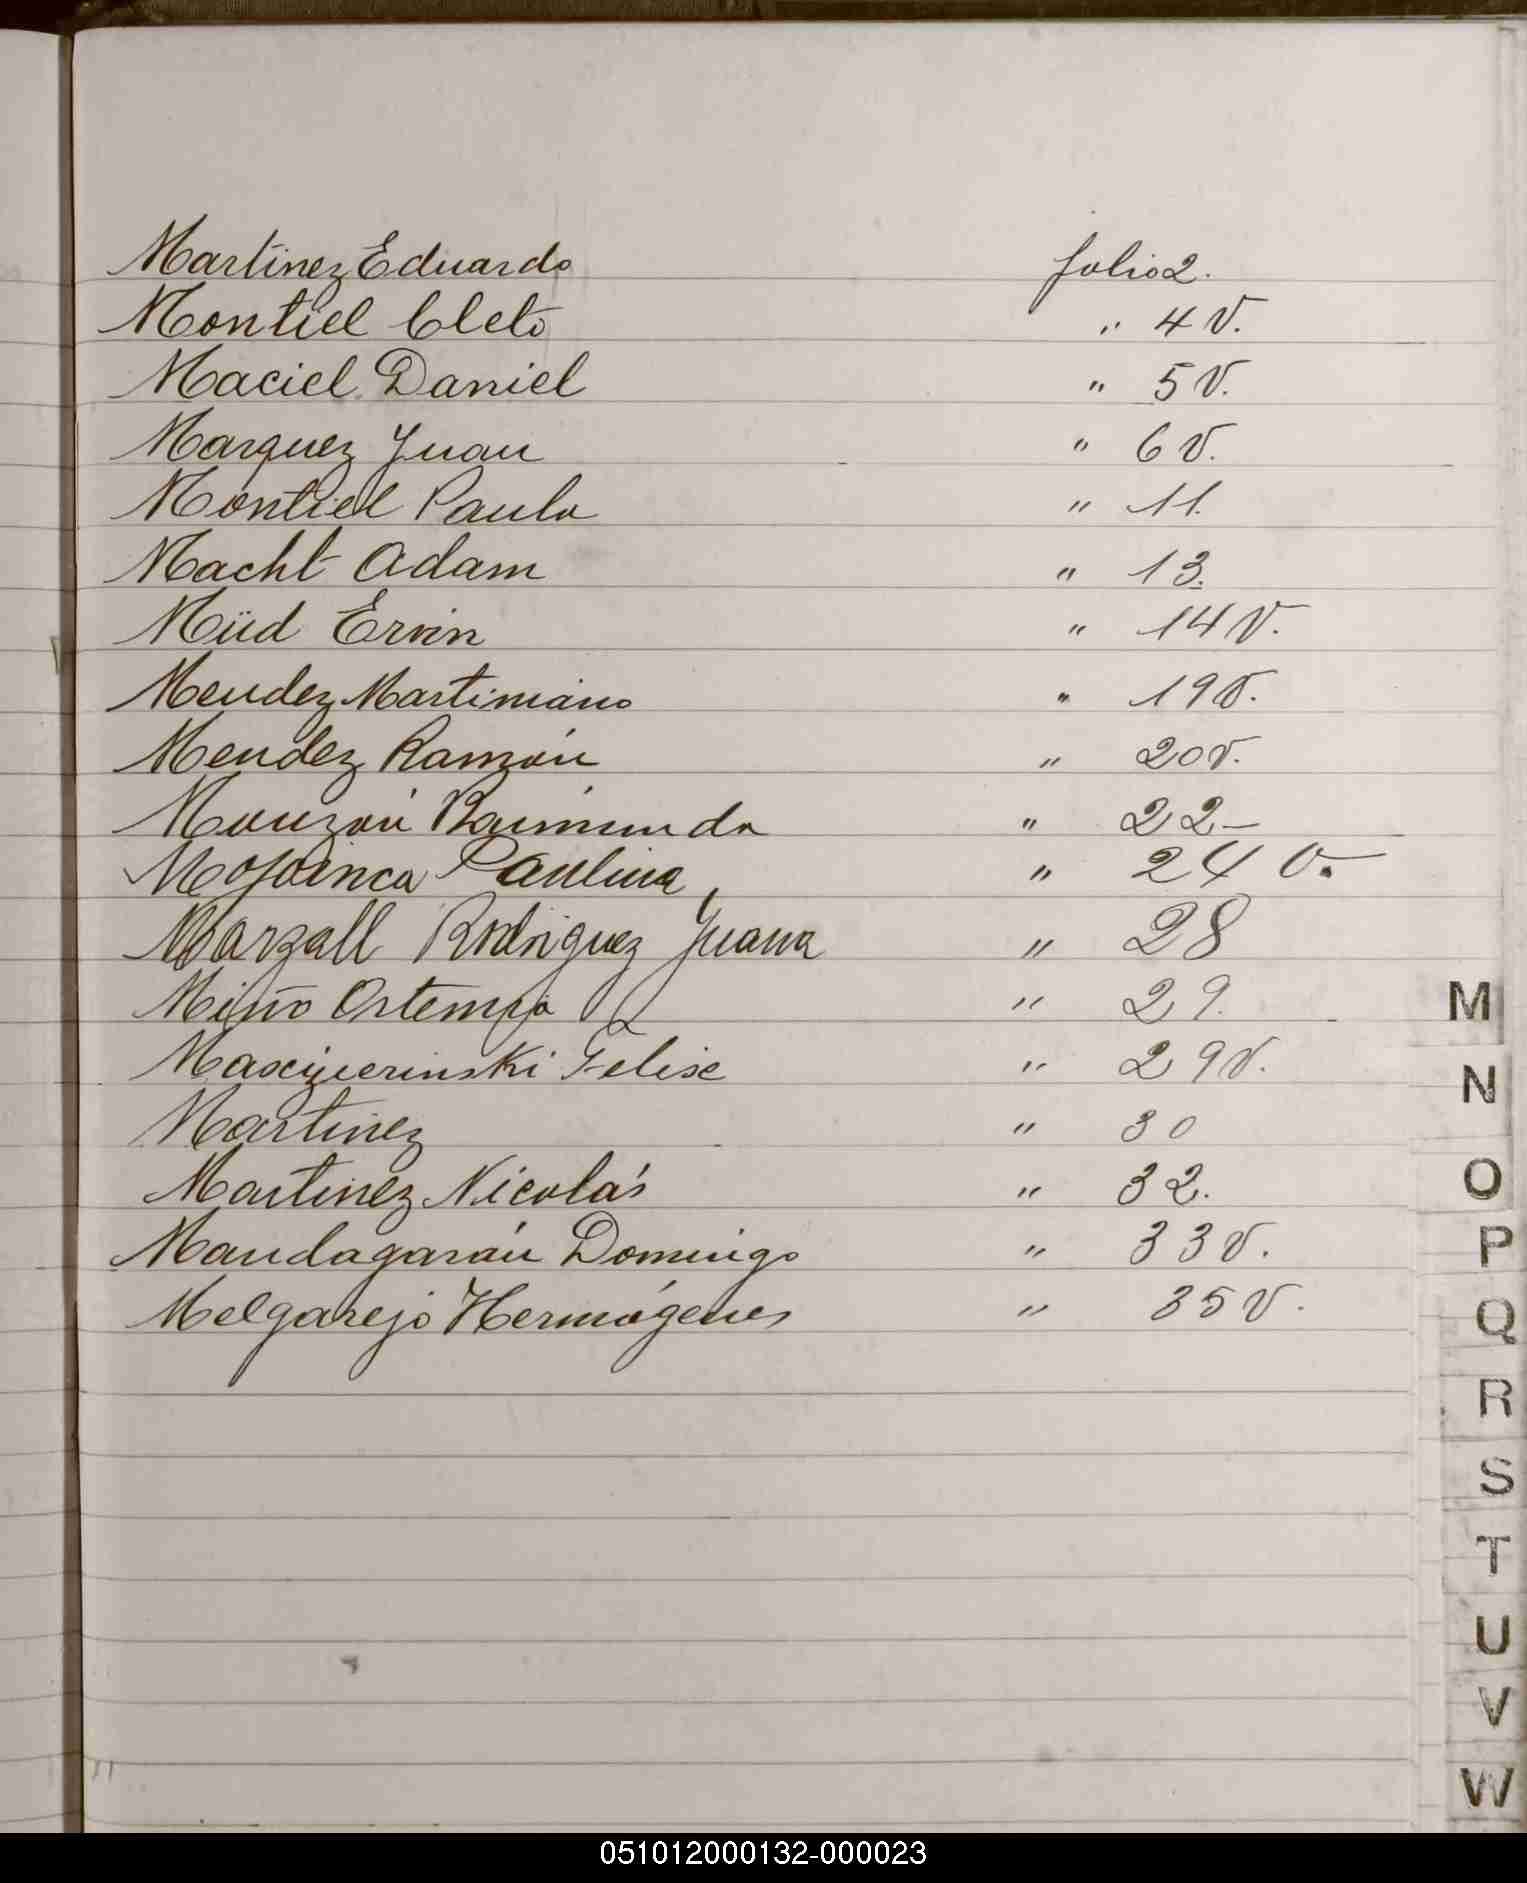 Martinez Eduardo folio 2.
Montiel Cleto " 4 V.
Maciel Daniel " 5 V.
Marquez Juan " 6 V.
Montiel Paula " 11.
Macht Adam " 13.
Müd Ervin " 14 V.
Mendez Martiniano " 19 V.
Mendez Ramón " 20 V.
Monzón Raimunda " 22-
Paulina " 24 V.
Marzall Rodriguez Juana " 28
Miño " 29.
Felise " 29 V.
Martinez " 30
Martinez Nicolás " 32.
Mandagarán Domingo " 33 V.
Melgarejo Hermógenes " 35 V.
M
N
O
P
Q
R
S
T
U
V
W
051012000132-000023